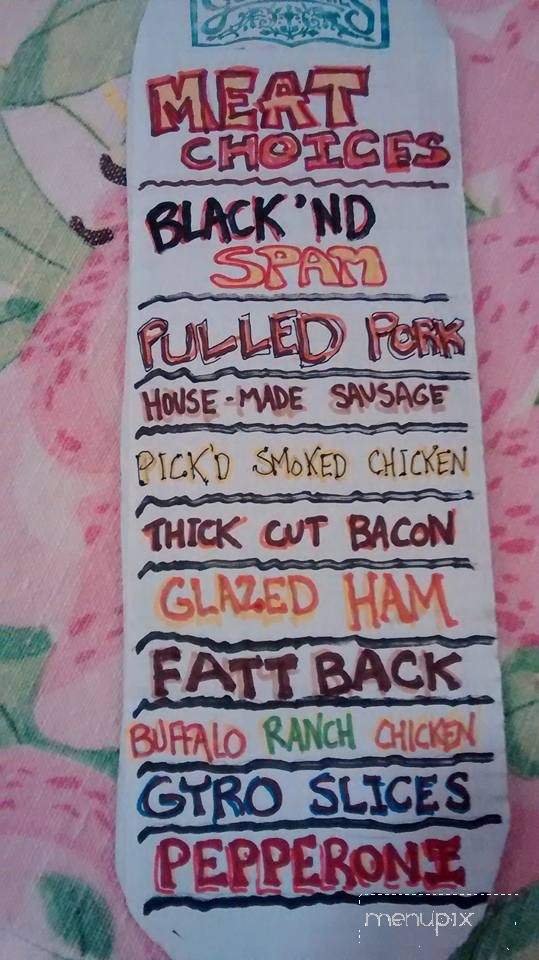 MEAT
CHOICES
BLACK'ND
SPAM
PULLED PORK
HOUSE-MADE SAUSAGE
PICK'D SMOKED CHICKEN
THICK CUT BACON
GLAZED HAM
FATT BACK
BUFFALO RANCH CHICKEN
GYRO SLICES
PEPPERONI
menupix